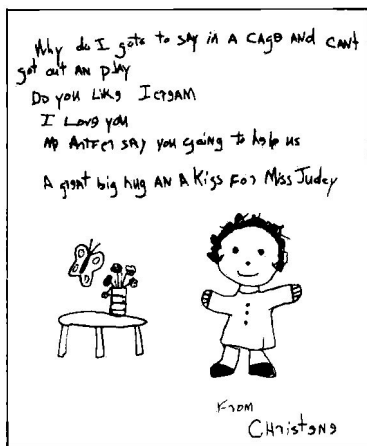 Why do I gots to say in a CAGE AND CANT
get out AN play
Do you like IcrgAM
I Love you
say you going to help us
A great big hug AN A Kiss For Miss Judey
From
CHristene